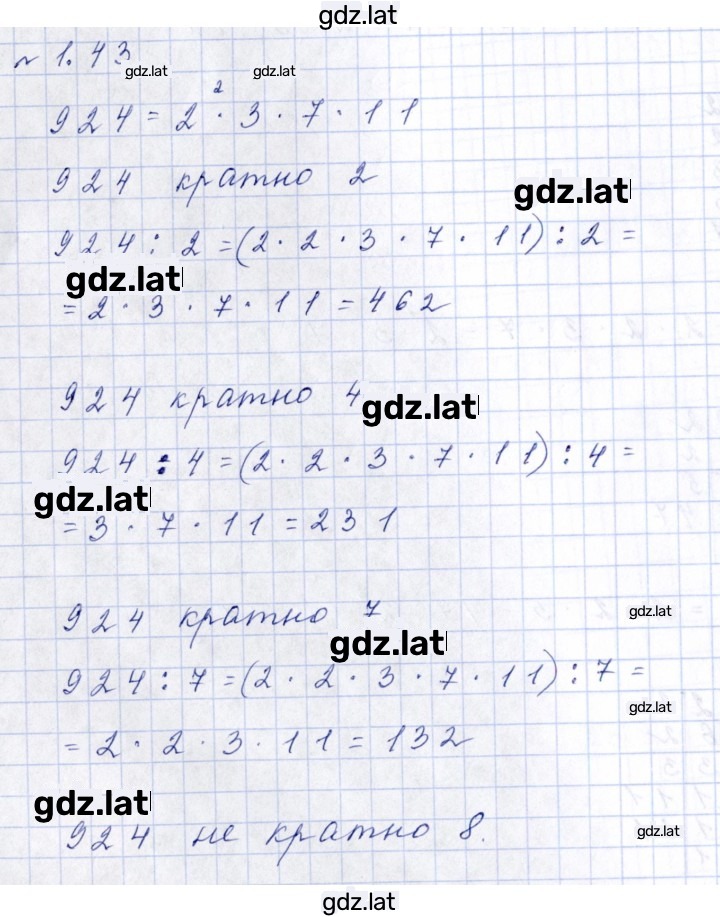 gdz.lat
№ 1.43
gdz.lat gdz.lat
924 = 2² · 3 · 7 · 11
924 кратно 2
gdz.lat
924 : 2 = (2 · 2 · 3 · 7 · 11) : 2 =
gdz.lat
= 2 · 3 · 7 · 11 = 462
924 кратно 4
gdz.lat
924 : 4 = (2 · 2 · 3 · 7 · 11) : 4 =
gdz.lat
= 3 · 7 · 11 = 231
924 кратно 7
gdz.lat
gdz.lat
924 : 7 = (2 · 2 · 3 · 7 · 11) : 7 =
gdz.lat
= 2 · 2 · 3 · 11 = 132
gdz.lat
924 не кратно 8.
gdz.lat
gdz.lat